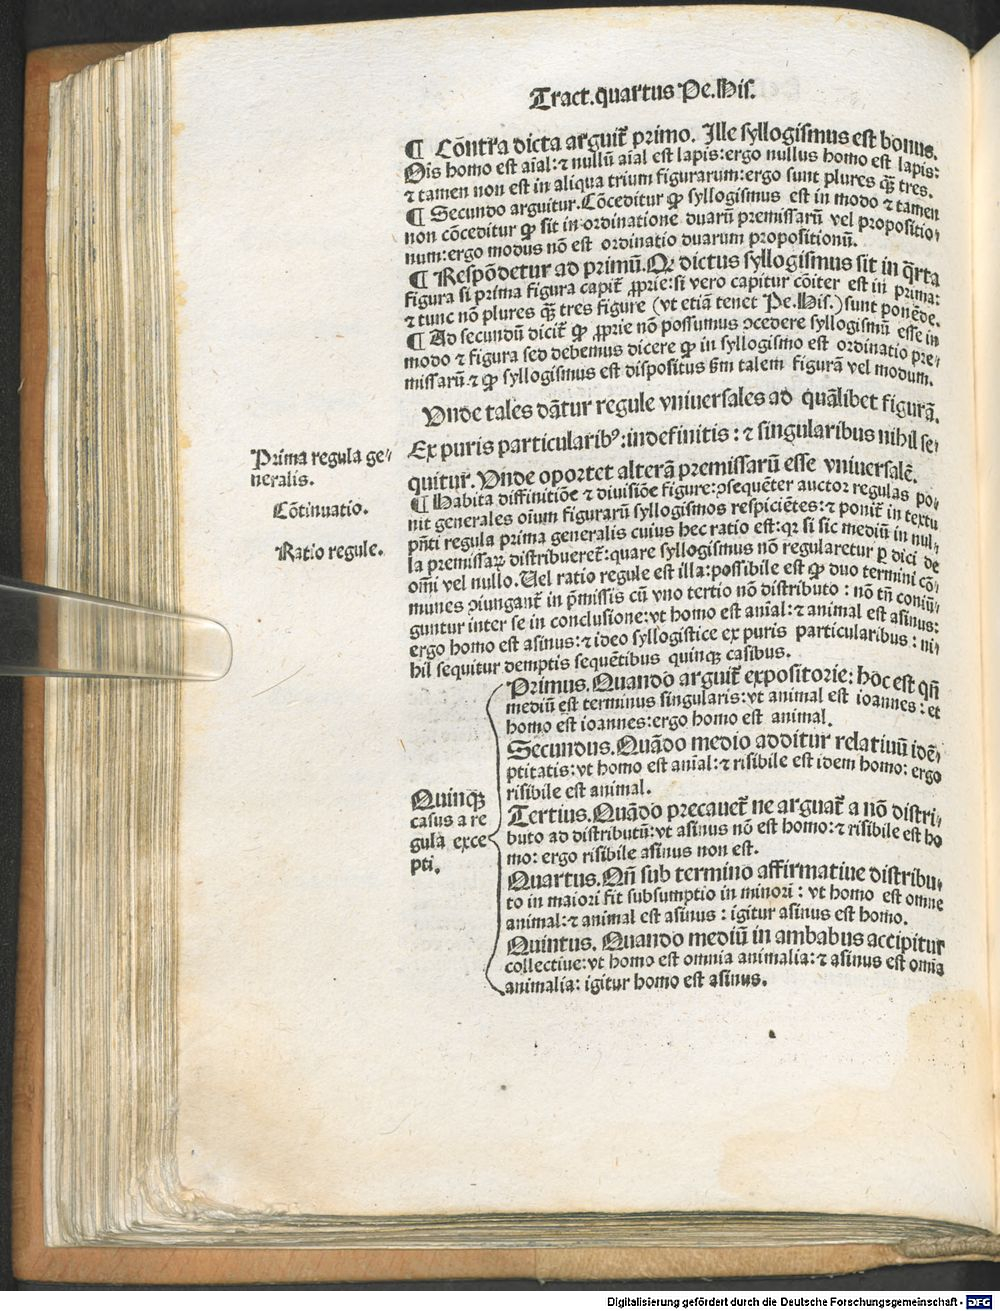 Tract.quartus Pe.His.
¶ Cõntra dicta arguit̃ primo. Ille syllogismus est bonus.
Ois homo est aĩal:⁊ nullũ aĩal est lapis:ergo nullus homo est lapis:
⁊ tamen non est in aliqua trium figurarum:ergo sunt plures q̃ȝ tres.
¶ Secundo arguitur.Cõceditur ꝙ syllogismus est in modo ⁊ tamen
non cõceditur ꝙ sit in ordinatione duarũ premissarũ vel propositio⸗
num:ergo modus nõ est ordinatio duarum propositionũ.
¶ Respõdetur ad primũ.Qꝛ dictus syllogismus sit in q̃rta
figura si prima figura capit̃ ꝓprie:si vero capitur cõiter est in prima:
⁊ tunc nõn plures q̃ȝ tres figure (vt etiã tenet Pe.His.) sunt ponẽde.
¶ Ad secundũ dicit̃ ꝙ ꝓprie nõ possumus ꝯcedere syllogismũ esse in
modo ⁊ figura sed debemus dicere ꝙ in syllogismo est ordinatio pre⸗
missarũ ⁊ ꝙ syllogismus est dispositus ẜm talem figurã vel modum.
Vnde tales dãtur regule vniuersales ad quãlibet figurã.
Ex puris particularibꝰ:indefinitis : ⁊ singularibus nihil se⸗
quitur. Vnde oportet alterã premissarũ esse vniuersalẽ.
Prima regula ge⸗
neralis.
Cõtinuatio.
Ratio regule.
¶ Habita diffinitiõe ⁊ diuisiõe figure:ꝯsequẽter auctor regulas po⸗
nit generales oĩum figurarũ syllogismos respiciẽtes:⁊ ponit̃ in textu
pñti regula prima generalis cuius hec ratio est:qꝛ si sic mediũ in nul⸗
la premissaꝝ distribueret̃:quare syllogismus nõ regularetur ꝑ dici de
omĩ vel nullo.Vel ratio regule est illa:possibile est ꝙ duo termini cõ⸗
munes ꝯiungant̃ in p̃missis cũ vno tertio nõ distributo : nõ tñ coniũ⸗
guntur inter se in conclusione:vt homo est anĩal:⁊ animal est asinus:
ergo homo est asinus:⁊ ideo syllogistice ex puris particularibus : ni⸗
hil sequitur demptis sequẽtibus quinqȝ casibus.
Quinqȝ
casus a re
gula exce
pti.
Primus.Quando arguit̃ expositorie: hoc est qñ
mediũ est terminus singularis:vt animal est ioannes : et
homo est ioannes:ergo homo est animal.
Secundus.Quãdo medio additur relatiuũ idẽ⸗
ptitatis:vt homo est anĩal:⁊ risibile est idem homo: ergo
risibile est animal.
Tertius.Quãdo precauet̃ ne arguat̃ a nõ distri⸗
buto ad distributũ:vt asinus nõ est homo:⁊ risibile est ho
mo: ergo risibile asinus non est.
Quartus.Qñ sub termino affirmatiue distribu⸗
to in maiori fit subsumptio in minori : vt homo est omne
animal:⁊ animal est asinus : igitur asinus est homo.
Quintus. Quando mediũ in ambabus accipitur
collectiue:vt homo est omnia animalia:⁊ asinus est omnia
animalia: igitur homo est asinus.
Digitalisierung gefördert durch die Deutsche Forschungsgemeinschaft - DFG